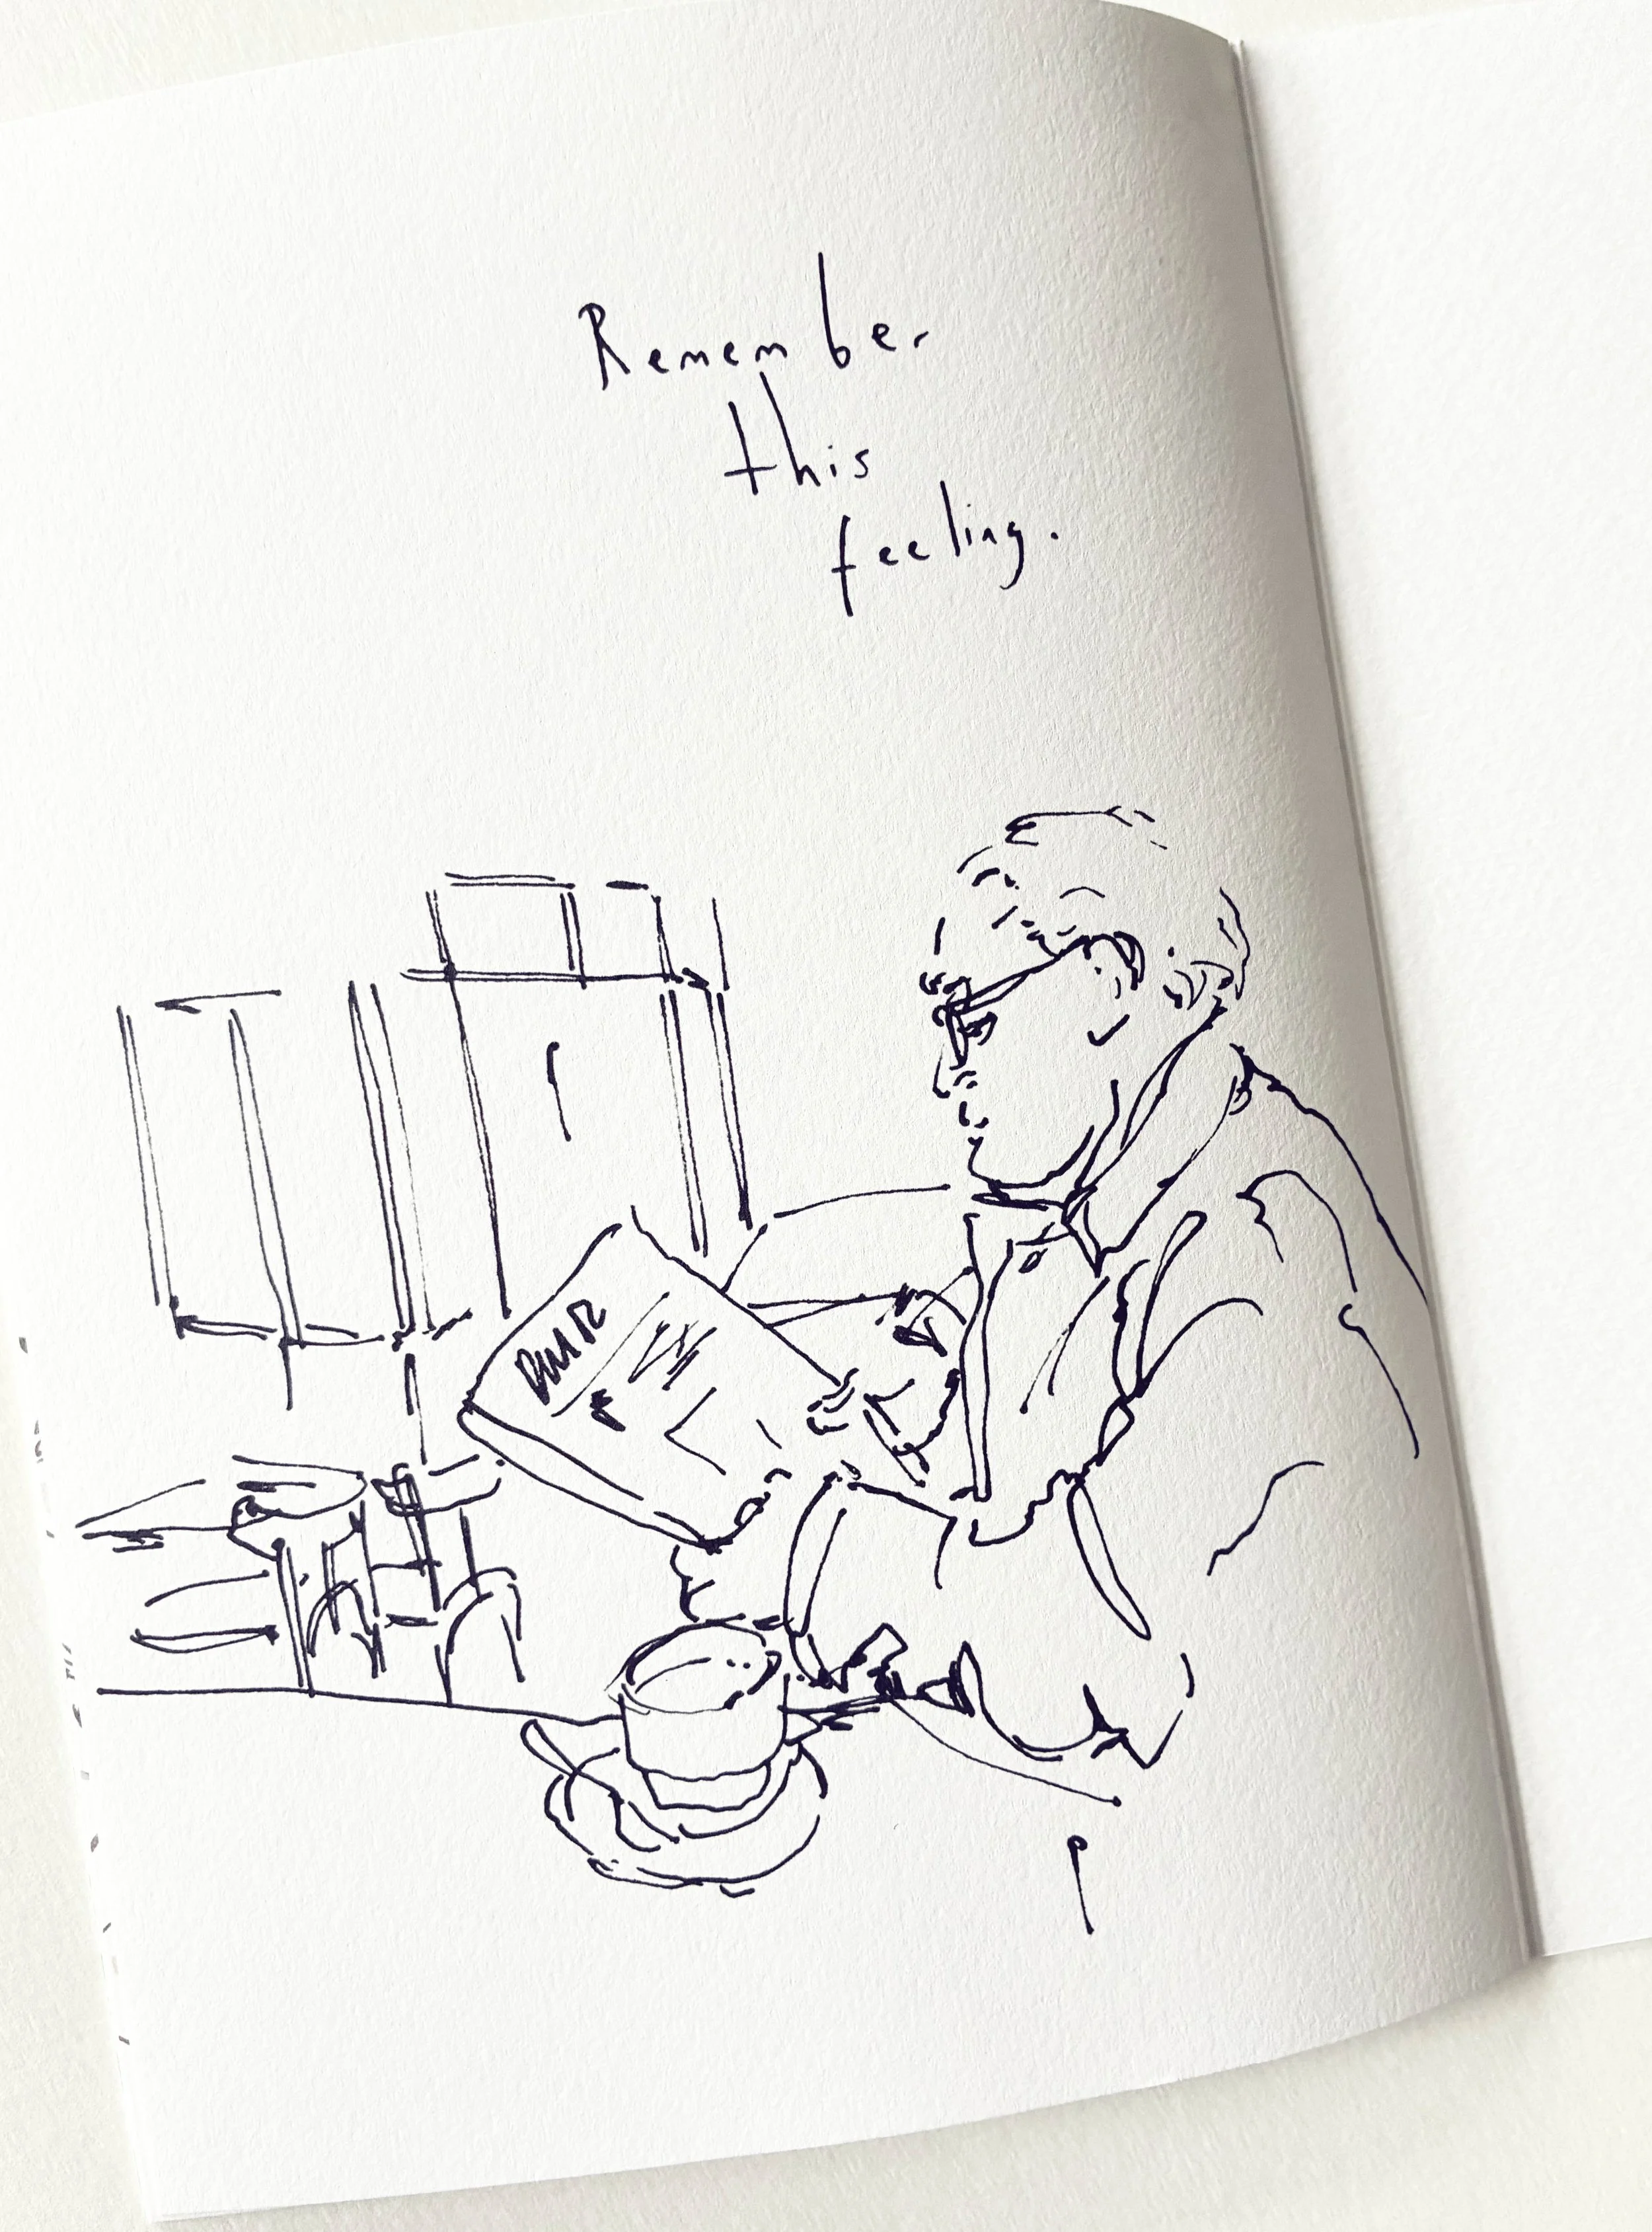 Remember
this
feeling.